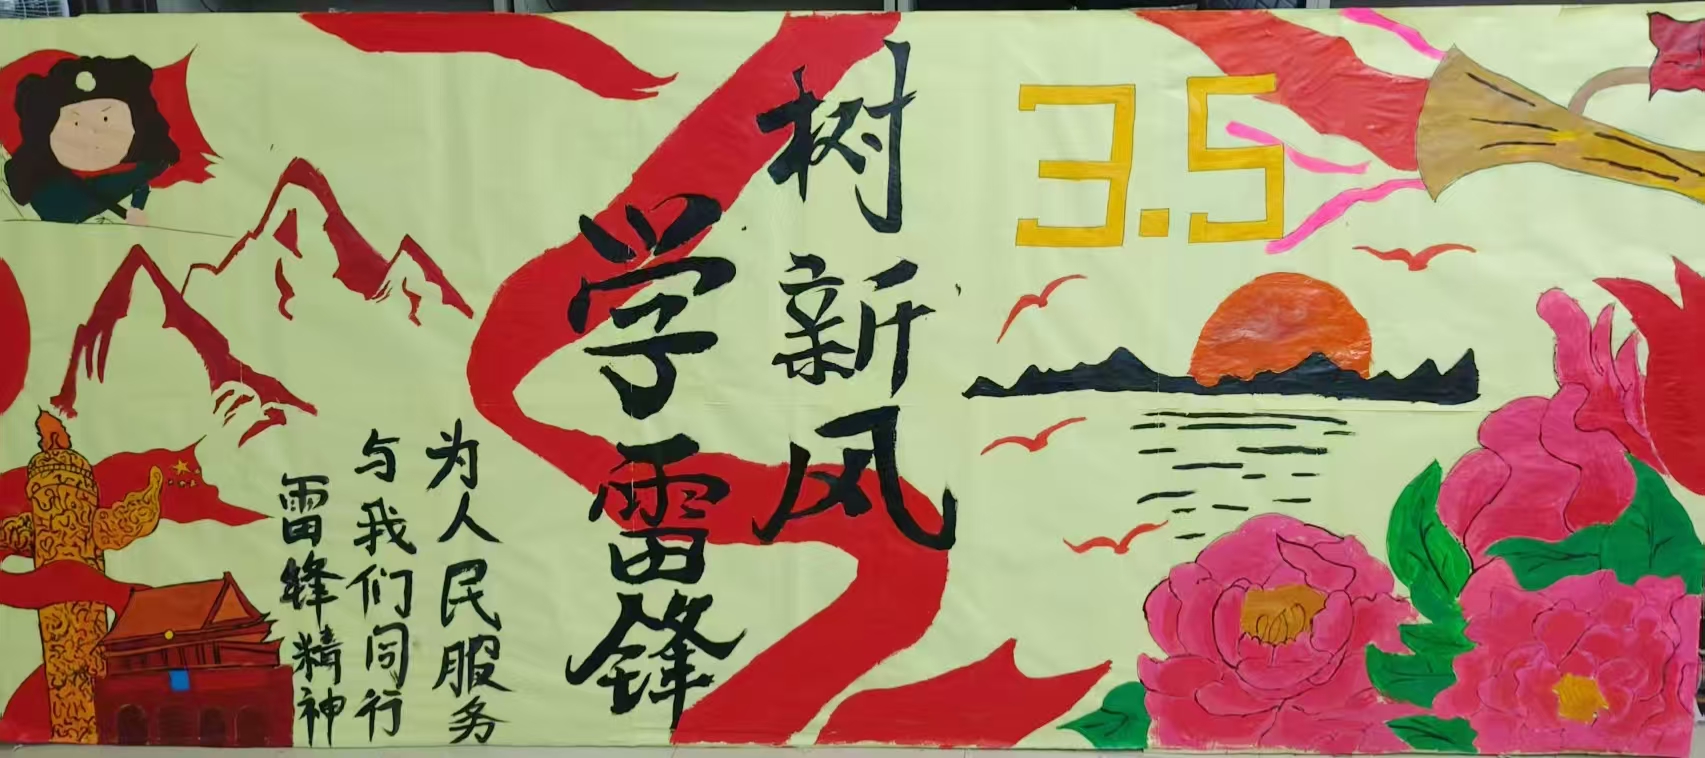 3.5
树新风
学雷锋
为人民服务
与我们同行
雷锋精神